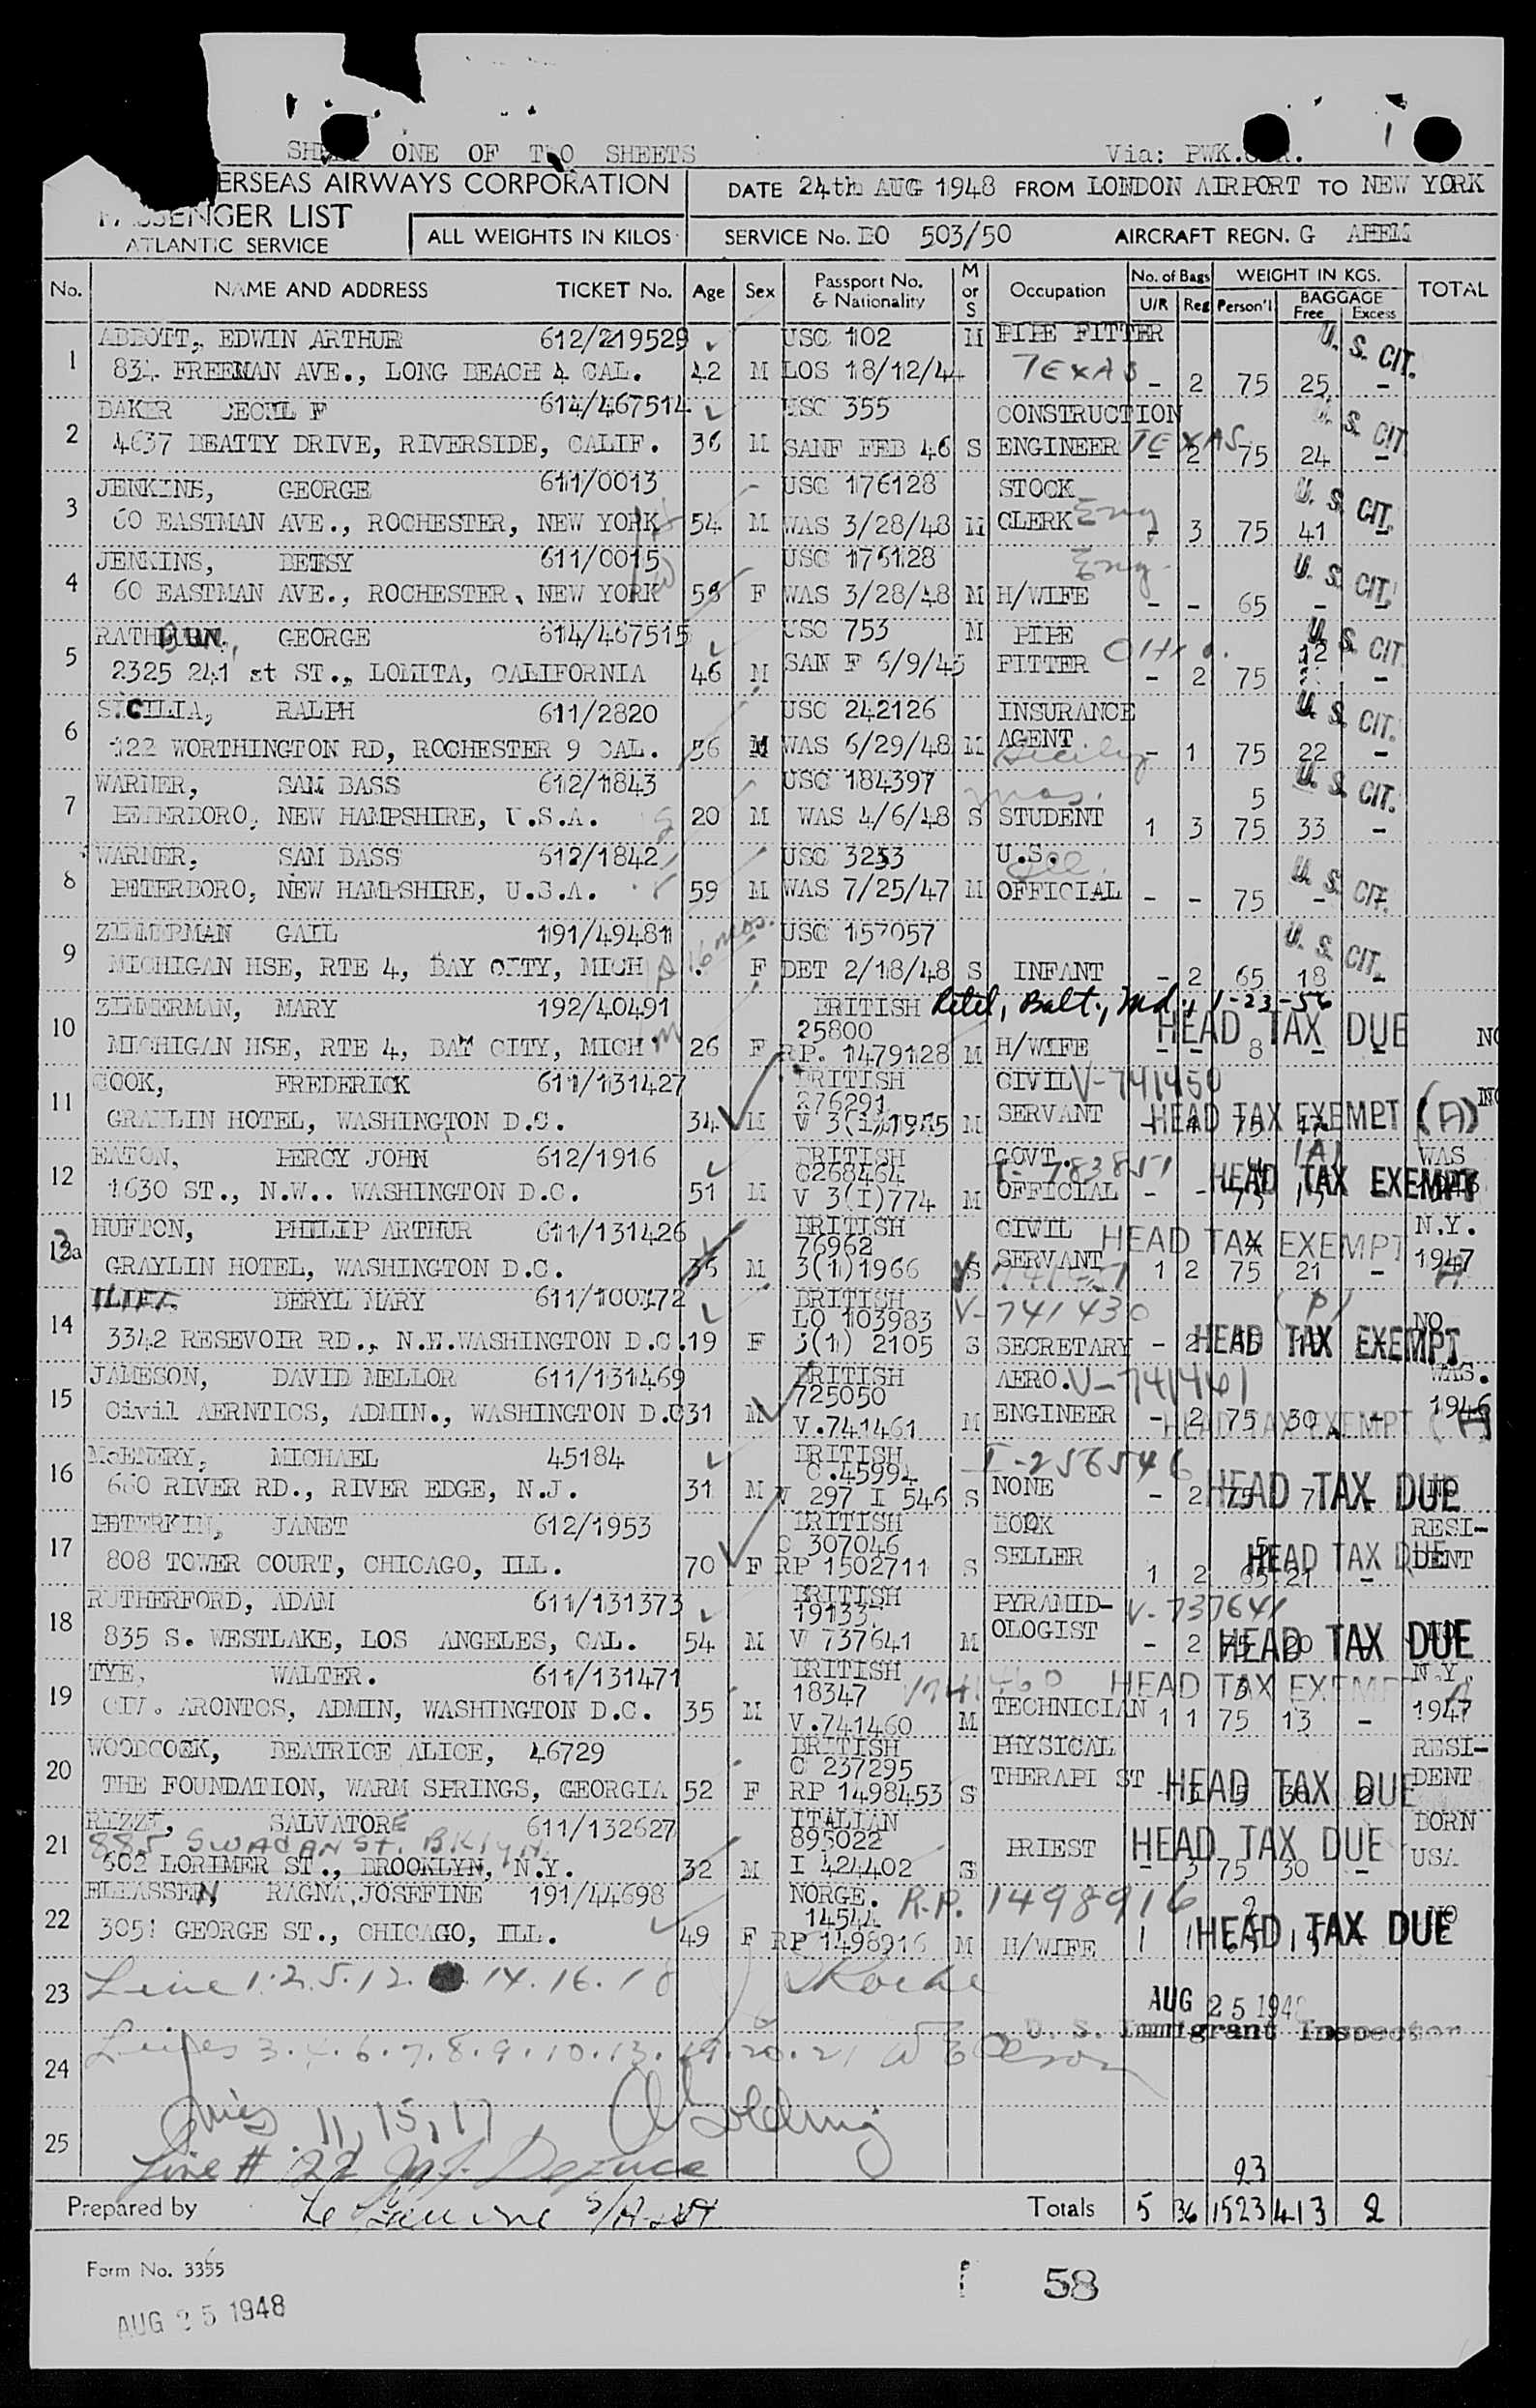 ONE OF TWO SHEETS Via: PWK.
ERSEAS AIRWAYS CORPORATION DATE 24th AUG 1948 FROM LONDON AIRPORT TO NEW YORK
PASSENGER LIST
ATLANTIC SERVICE ALL WEIGHTS IN KILOS SERVICE No. BO 503/50 AIRCRAFT REGN. G AHEM
No. NAME AND ADDRESS TICKET No. Age Sex Passport No. & Nationality M or S Occupation No. of Bags U/R Reg WEIGHT IN KGS. Person'l BAGGAGE Free Excess TOTAL
1 ABBOTT, EDWIN ARTHUR 612/219529 USC 102 M PIPE FITTER U. S. CIT.
834 FREEMAN AVE., LONG BEACH 4 CAL. 42 M LOS 18/12/44 TEXAS - 2 75 25 -
2 BAKER CECIL F 614/467514 USC 355 CONSTRUCTION U. S. CIT.
4637 BEATTY DRIVE, RIVERSIDE, CALIF. 36 M SANF FEB 46 S ENGINEER TEXAS - 2 75 24 -
3 JENKINS, GEORGE 611/0013 USC 176128 STOCK U. S. CIT.
60 EASTMAN AVE., ROCHESTER, NEW YORK 54 M WAS 3/28/48 M CLERK Eng - 3 75 41 -
4 JENKINS, BETSY 611/0015 USC 176128 Eng. U. S. CIT.
60 EASTMAN AVE., ROCHESTER, NEW YORK F WAS 3/28/48 M H/WIFE - - 65 - -
5 RATHBUN, GEORGE 614/467515 USC 753 M PIPE OHIO. 12 U. S. CIT.
2325 241 st ST., LOMITA, CALIFORNIA 46 M SAN F 6/9/45 FITTER - 2 75 -
6 SICILIA, RALPH 611/2820 USC 242126 INSURANCE U. S. CIT.
122 WORTHINGTON RD, ROCHESTER 9 CAL. 56 M WAS 6/29/48 M AGENT Sicily - 1 75 22 -
7 WARNER, SAM BASS 612/1843 USC 184397 Mas. 5 U. S. CIT.
PETERBORO, NEW HAMPSHIRE, U.S.A. S 20 M WAS 4/6/48 S STUDENT 1 3 75 33 -
8 WARNER, SAM BASS 612/1842 USC 3253 U.S. Ill. U. S. CIT.
PETERBORO, NEW HAMPSHIRE, U.S.A. 59 M WAS 7/25/47 M OFFICIAL - - 75 -
9 ZIMMERMAN GAIL 191/49481 16 mos. USC 157057 U. S. CIT.
MICHIGAN HSE, RTE 4, BAY CITY, MICH F DET 2/18/48 S INFANT - 2 65 18 -
10 ZIMMERMAN, MARY 192/40491 BRITISH 25800 Balt., Md., 1-23-56 HEAD TAX DUE
MICHIGAN HSE, RTE 4, BAY CITY, MICH. m 26 F RP. 1479128 M H/WIFE - - 8 - - NO
11 COOK, FREDERICK 611/131427 BRITISH 276291 CIVIL V-741450
GRAYLIN HOTEL, WASHINGTON D.C. 34 M M SERVANT HEAD TAX EXEMPT (A)
12 EATON, PERCY JOHN 612/1916 BRITISH C268464 GOVT. (A) WAS
1630 ST., N.W.. WASHINGTON D.C. 51 M V 3(I)774 M OFFICIAL - - HEAD TAX EXEMPT
12a HUFTON, PHILIP ARTHUR 611/131426 BRITISH 76962 CIVIL HEAD TAX EXEMPT N.Y.
GRAYLIN HOTEL, WASHINGTON D.C. M 3(1)1966 S SERVANT 1 2 75 21 - 1947
14 BERYL MARY BRITISH LO 103983 V-741430 NO
3342 RESEVOIR RD., N.E.WASHINGTON D.C. 19 F 3(1) 2105 S SECRETARY - 2 HEAD TAX EXEMPT
15 JAMESON, DAVID MELLOR 611/131469 BRITISH 725050 AERO. V-741461 WAS.
Civil AERNTICS, ADMIN., WASHINGTON D.C 31 M V.741461 M ENGINEER - 2 75 30 - HEAD TAX EXEMPT (A) 1946
16 McENERY, MICHAEL 45184 BRITISH C.45994 I-256546
660 RIVER RD., RIVER EDGE, N.J. 31 M V 297 I 546 S NONE - 2 75 7 HEAD TAX DUE NO
17 PETERKIN, JANET 612/1953 BRITISH C 307046 BOOK 5 RESI-
808 TOWER COURT, CHICAGO, ILL. 70 F RP 1502711 S SELLER 1 2 65 21 - HEAD TAX DUE DENT
18 RUTHERFORD, ADAM 611/131373 BRITISH 19133 PYRAMID- V-737641
835 S. WESTLAKE, LOS ANGELES, CAL. 54 M V 737641 M OLOGIST - 2 75 20 HEAD TAX DUE
19 TYE, WALTER. 611/131471 BRITISH 18347 V741460 HEAD TAX EXEMPT 3 N.Y.
CIV. ARONTCS, ADMIN, WASHINGTON D.C. 35 M V.741460 M TECHNICIAN 1 1 75 13 - 1947
20 WOODCOCK, BEATRICE ALICE, 46729 BRITISH C 237295 PHYSICAL RESI-
THE FOUNDATION, WARM SPRINGS, GEORGIA 52 F RP 1498453 S THERAPI ST HEAD TAX DUE DENT
21 RIZZI, SALVATORE 611/132627 ITALIAN 895022 HEAD TAX DUE BORN
885 ST. BKLYN
602 LORIMER ST., BROOKLYN, N.Y. 32 M I 424402 S PRIEST - 3 75 30 - USA
22 ELLASSEN, RAGNA,JOSEFINE 191/44698 NORGE. 14544 R.P. 1498916 2 NO
3051 GEORGE ST., CHICAGO, ILL. 49 F RP 1498916 M H/WIFE 1 1 HEAD TAX DUE
23 Line 1.2.5.12. 14.16.18 AUG 25 1948
U. S. Immigrant Inspector
24 Lines 3.4.6.7.8.9.10.13.19.20.21
25 Lines 11, 15, 17
Line # 22
23
Prepared by Totals 5 36 1523 413 2
Form No. 3355
58
AUG 25 1948